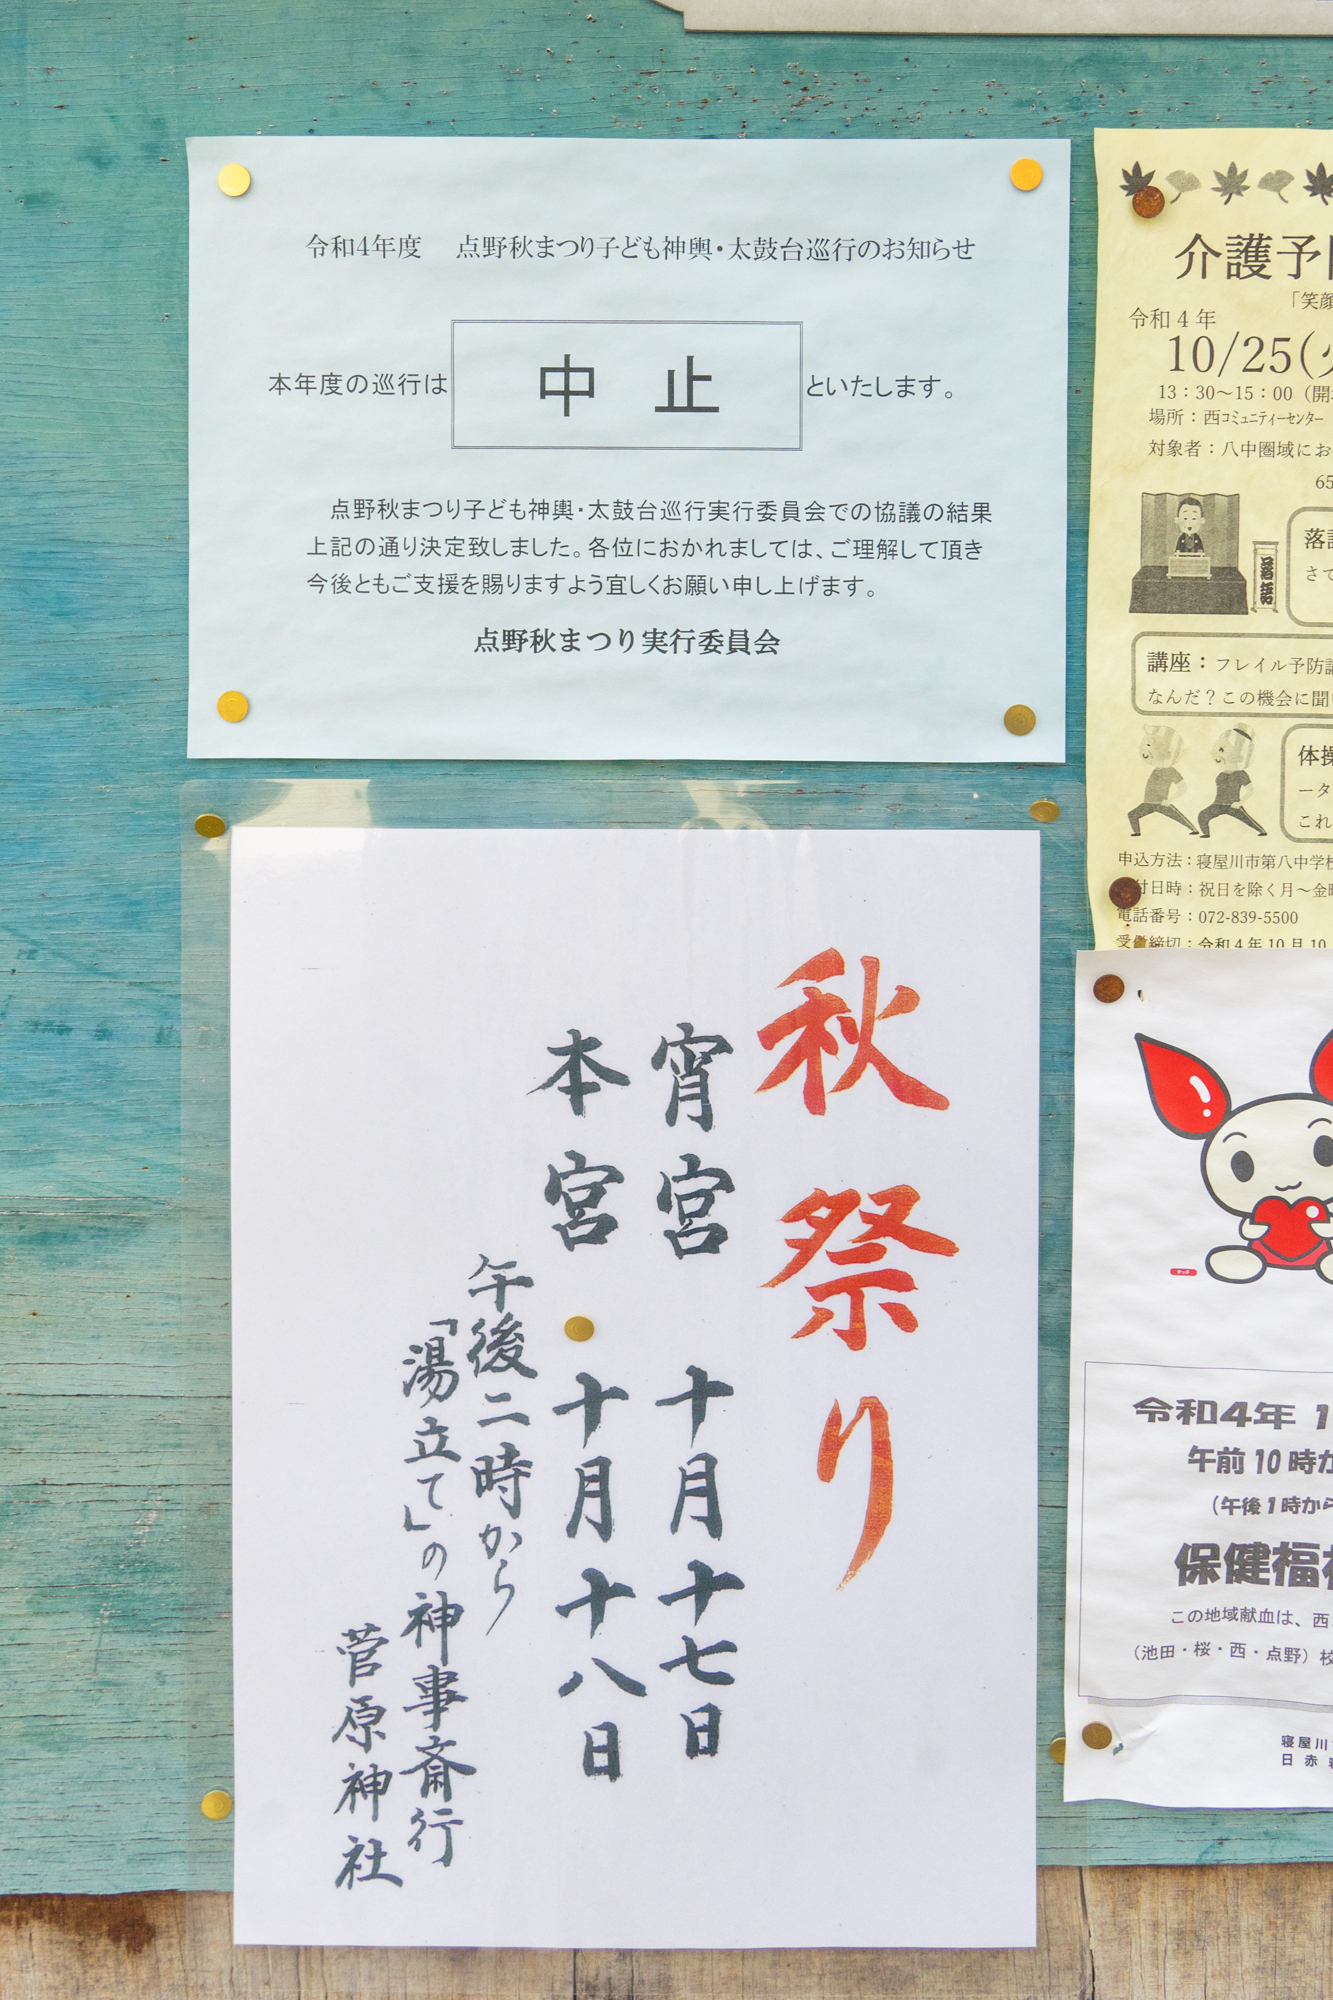 令和4年度　点野秋まつり子ども神輿・太鼓台巡行のお知らせ
本年度の巡行は 中 止 といたします。
点野秋まつり子ども神輿・太鼓台巡行実行委員会での協議の結果
上記の通り決定致しました。各位におかれましては、ご理解して頂き
今後ともご支援を賜りますよう宜しくお願い申し上げます。
点野秋まつり実行委員会
秋祭り
宵宮 十月十七日
本宮 十月十八日
午後二時から
「湯立て」の神事斎行
菅原神社
介護予
「笑顔
令和4年
10/25(火
13：30～15：00（開
場所：西コミュニティーセンター
対象者：八中圏域にお
65
落語
落
さて
講座：フレイル予防講
なんだ？この機会に聞
体操
ータ
これ
申込方法：寝屋川市第八中学校
付日時：祝日を除く月～金曜
電話番号：072-839-5500
受付締切：令和4年10月10
令和4年 1
午前10時か
（午後1時から
保健福祉
この地域献血は、西
（池田・桜・西・点野）校
寝屋川
日赤